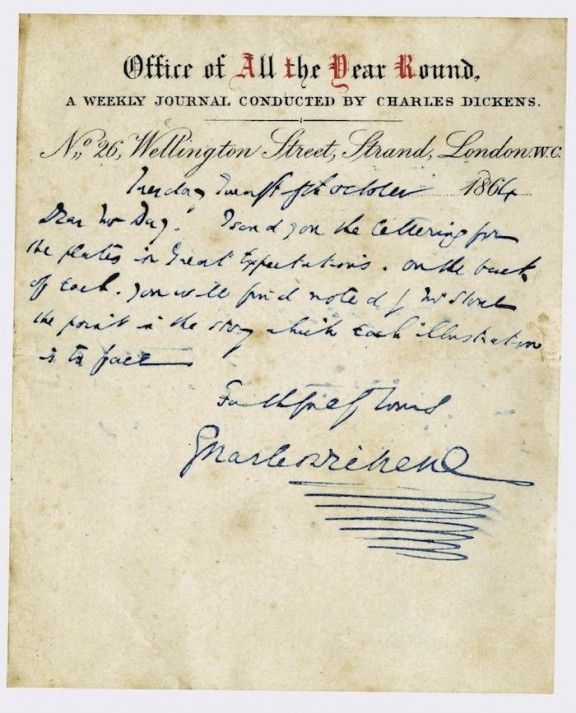 Office of All the Year Round,
A WEEKLY JOURNAL CONDUCTED BY CHARLES DICKENS.
No. 26, Wellington Street, Strand, London. W.C.
Tuesday Twenty fifth October 1864
Dear Mr Day. I send you the lettering for
the plates in Great Expectations. On the back
of each. you will find noted by Mr Stone
the point in the story which each illustration
is to face
Faithfully Yours
Charles Dickens